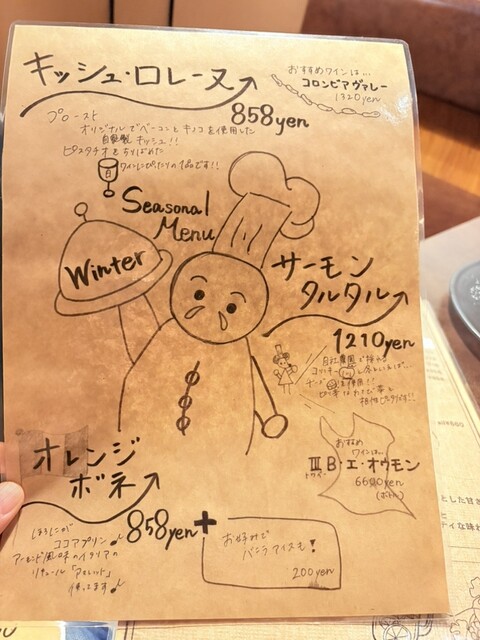 キッシュ・ロレーヌ
858yen
おすすめワインは…
コロンビアヴァレー
1320yen
プロースト
オリジナルでベーコンとキノコを使用した
自家製キッシュ!!
ピスタチオをちりばめた
ワインにぴったりの1品です!!
白
Seasonal
Menu
Winter
サーモン
タルタル
1210yen
自社農園で採れる
チーズ
を使用!!
相性ピッタリです!!
おすすめ
ワインは…
ⅢB・エ・オウモン
トワベー
6600yen
(ボトル)
オレンジ
ボネ
858yen
+
ほろにが
ココアプリン
アーモンド風味のイタリアの
リキュール「アマレット」
使ってます
お好みで
バニラアイスも!
200yen